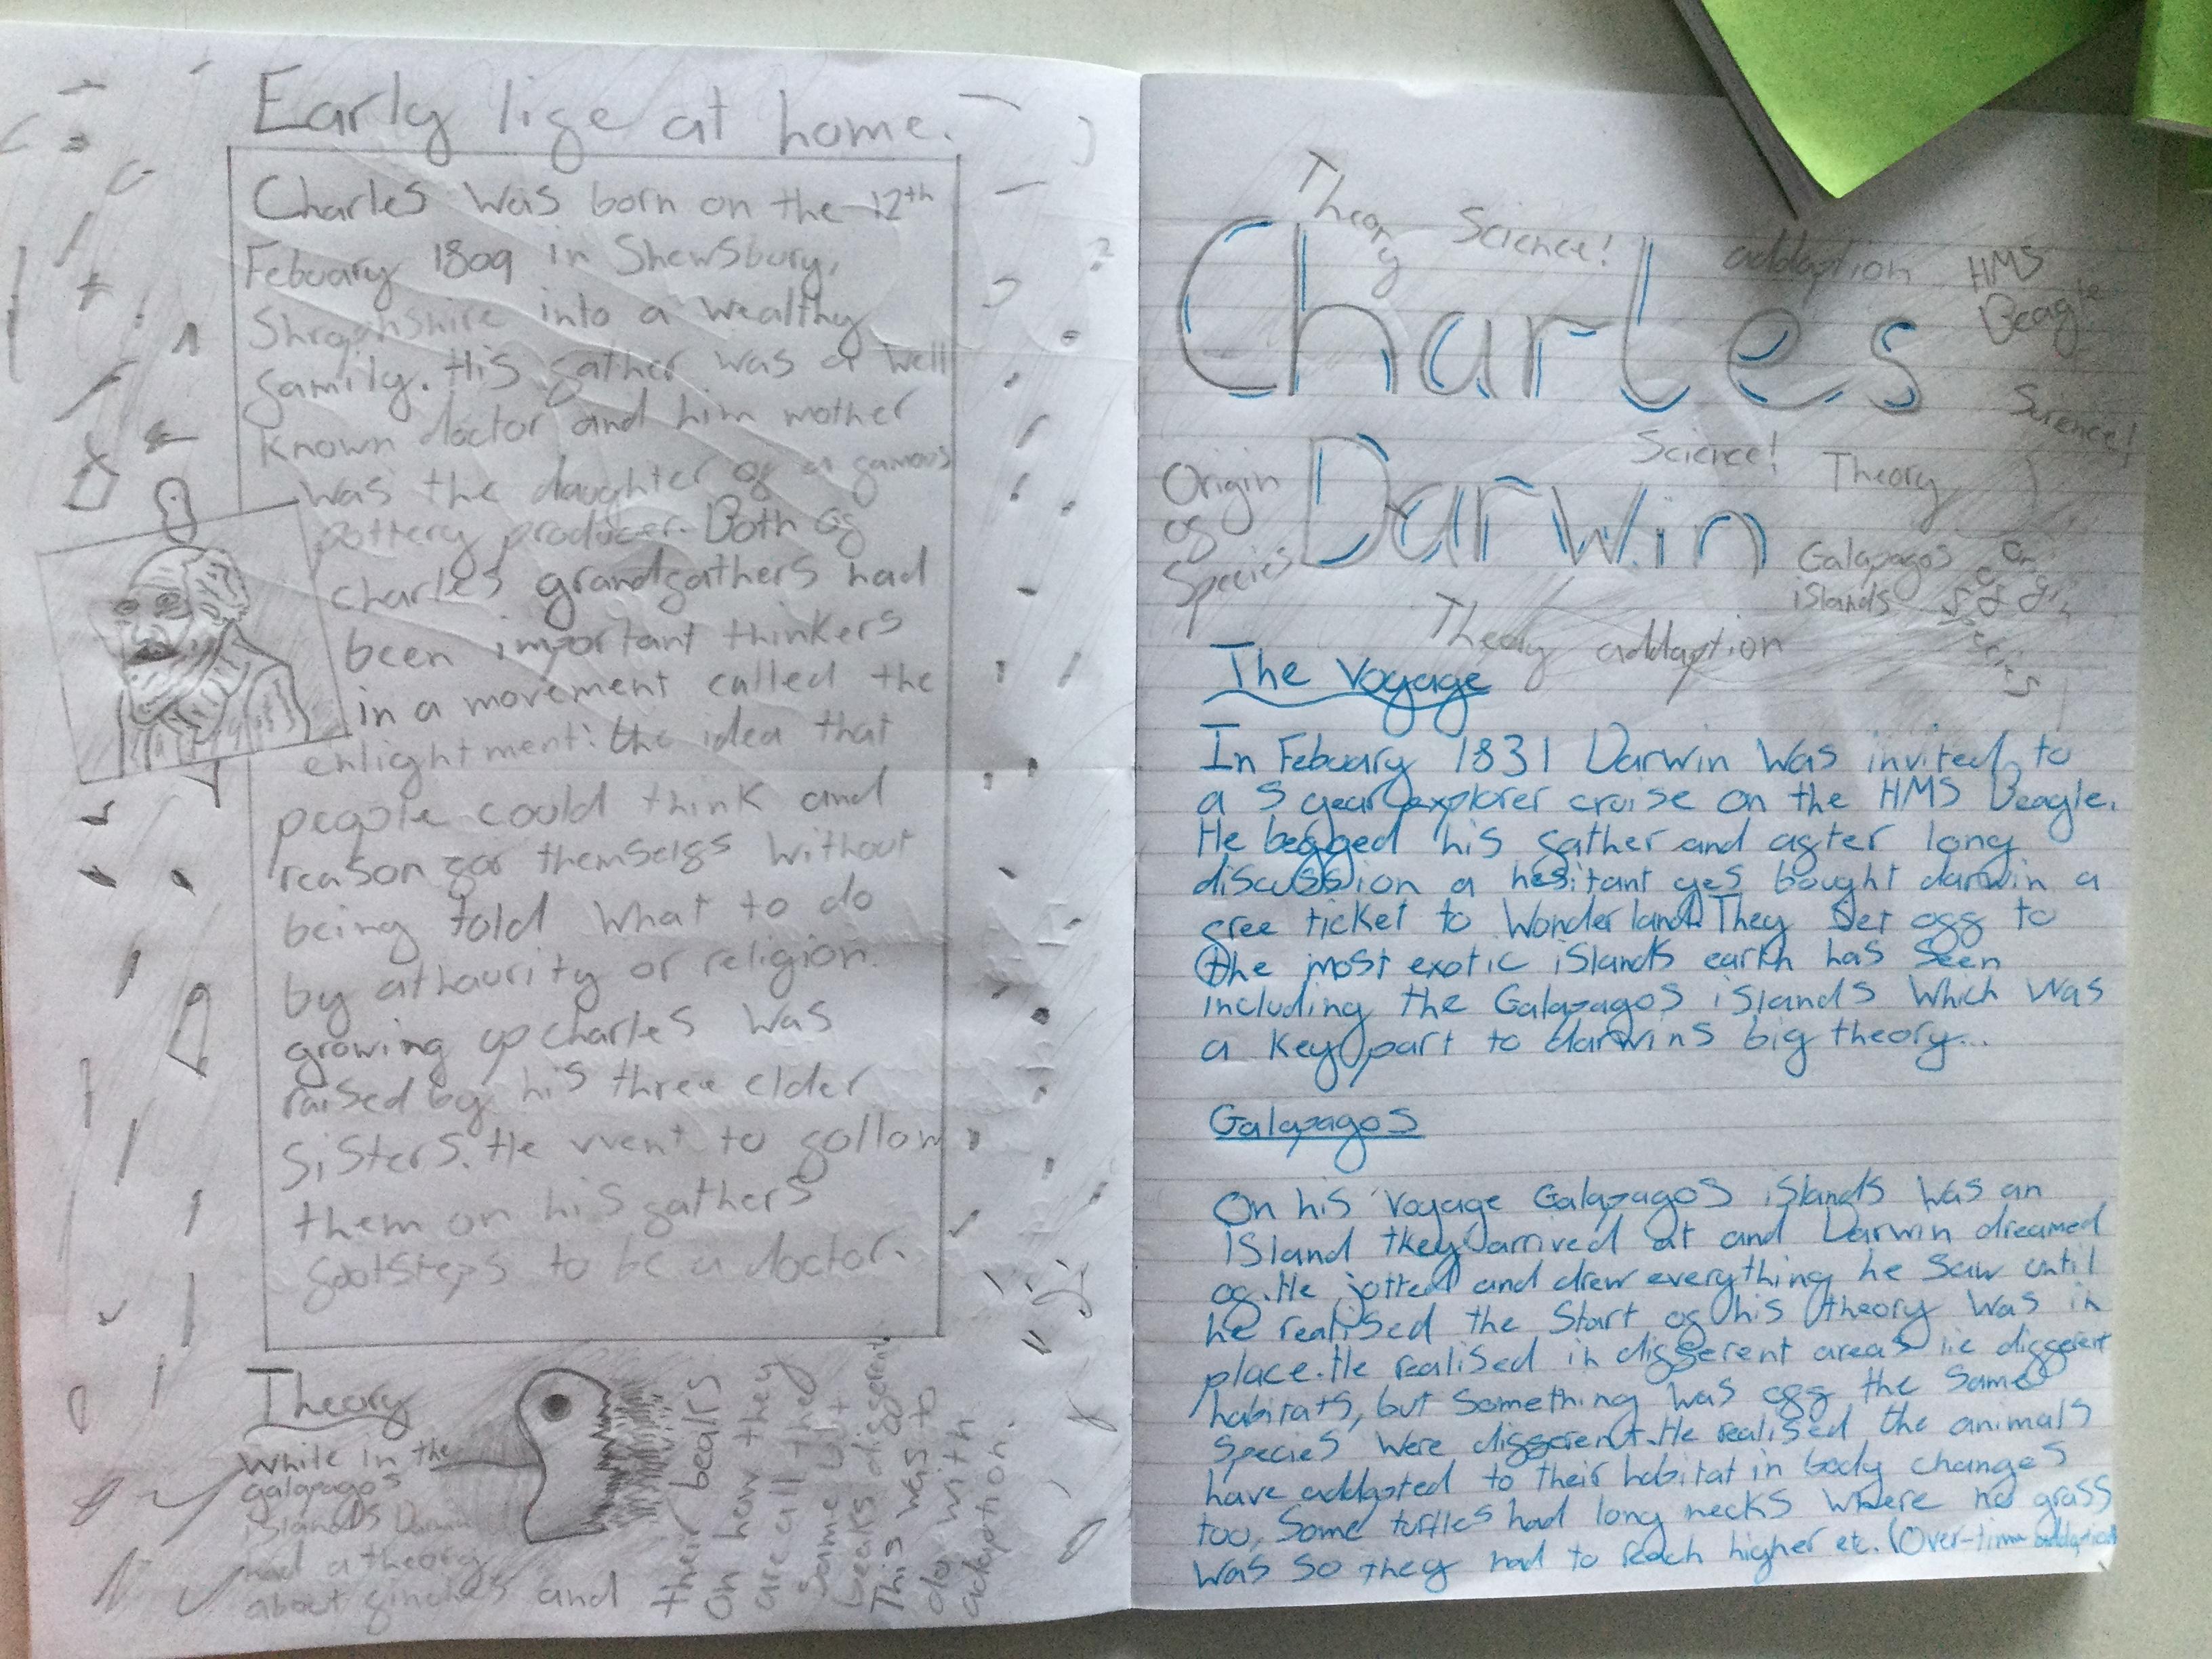 Early life at home.
Charles was born on the 12th
Febuary 1809 in Shewsbury,
Shropshire into a wealthy
family. His father was a well
known doctor and him mother
was the daughter of a famous
pottery producer. Both of
charles grandfathers had
been important thinkers
in a movement called the
enlightment: the idea that
people could think and
reason for themselfs without
being told what to do
by athaurity or religion.
growing up charles was
raised by his three elder
sisters. He went to follow
them on his fathers
footsteps to be a doctor.
Theory
While in the
galapagos
islands Darwin
had a theory
about finches and
their beaks
on how they
are all the
same but
beaks different
This was to
do with
adaption.
Theory
Science!
addaption
HMS
Beagle
Charles
Science!
Science!
Theory
Origin
of
Species
Darwin
Galapagos
islands
Origin
of
Species
Theory
addaption
The Voyage
In Febuary 1831 Darwin was invited to
a 5 year explorer cruise on the HMS Beagle.
He begged his father and after long
discussion a hesitant yes bought darwin a
free ticket to Wonderland. They set off to
the most exotic islands earth has seen
including the Galapagos islands which was
a key part to darwins big theory...
Galapagos
On his voyage Galapagos islands was an
island they arrived at and Darwin dreamed
of. He jotted and drew everything he saw until
he realised the start of his theory was in
place. He realised in different areas lie different
habitats, but something was off the same
species were different. He realised the animals
have addapted to their habitat in body changes
too, Some turtles had long necks where no grass
was so they had to reach higher etc. (Over-time addaption